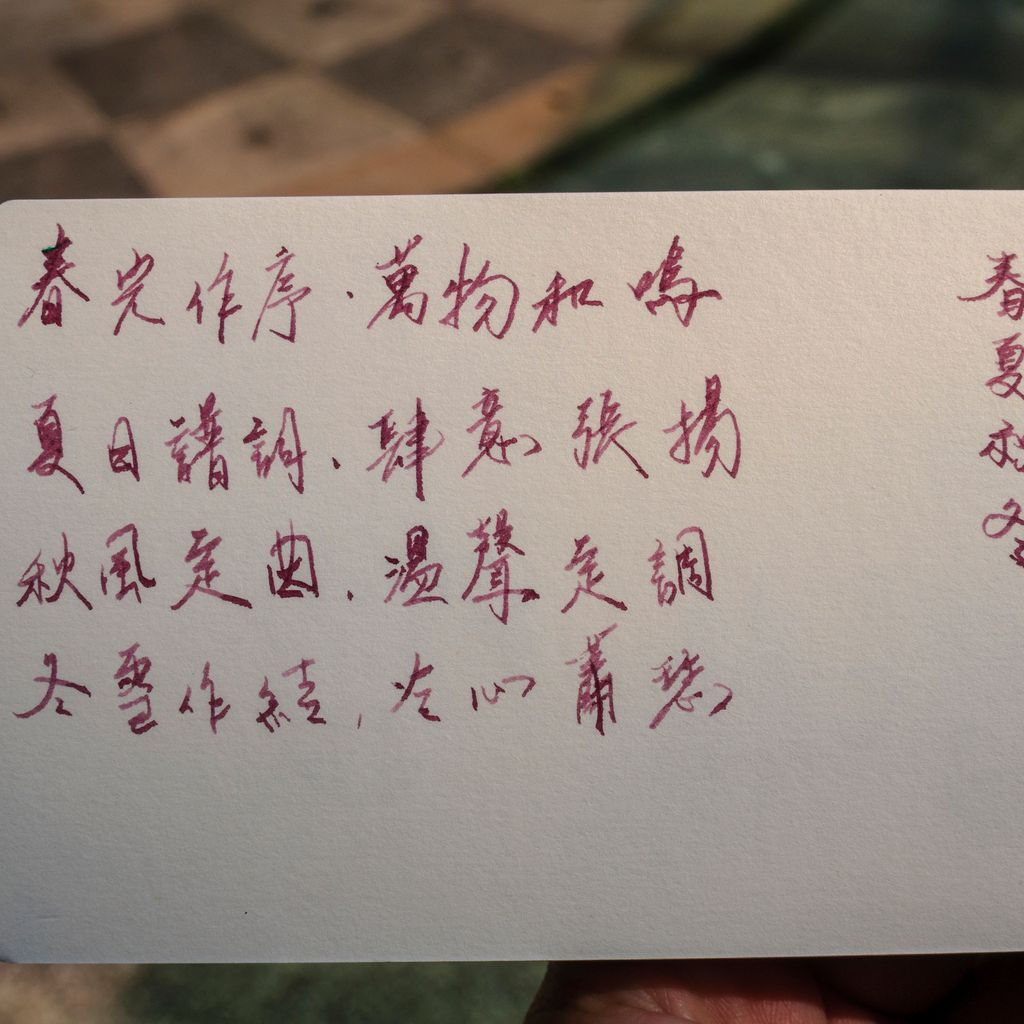 春光作序，萬物和鳴
夏日譜詞，肆意張揚
秋風定曲，溫聲定調
冬雪作結，冷心蕭瑟
春
夏
秋
冬